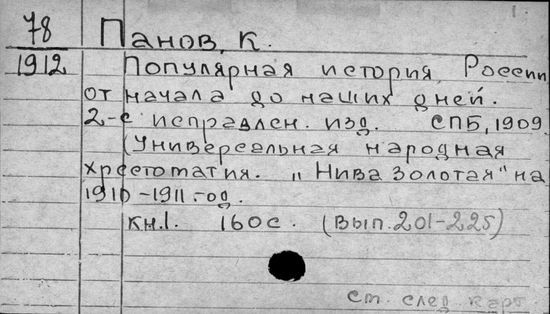 78
1912
Панов, К.
Популярная история России
от начала до наших дней.
2-е исправлен. изд. СПБ, 1909.
(Универсальная народная
хрестоматия. „Нива Золотая" на
1910-1911.-од.
кн.1. 160с. (Вып. 201-225)
См. след. карт.